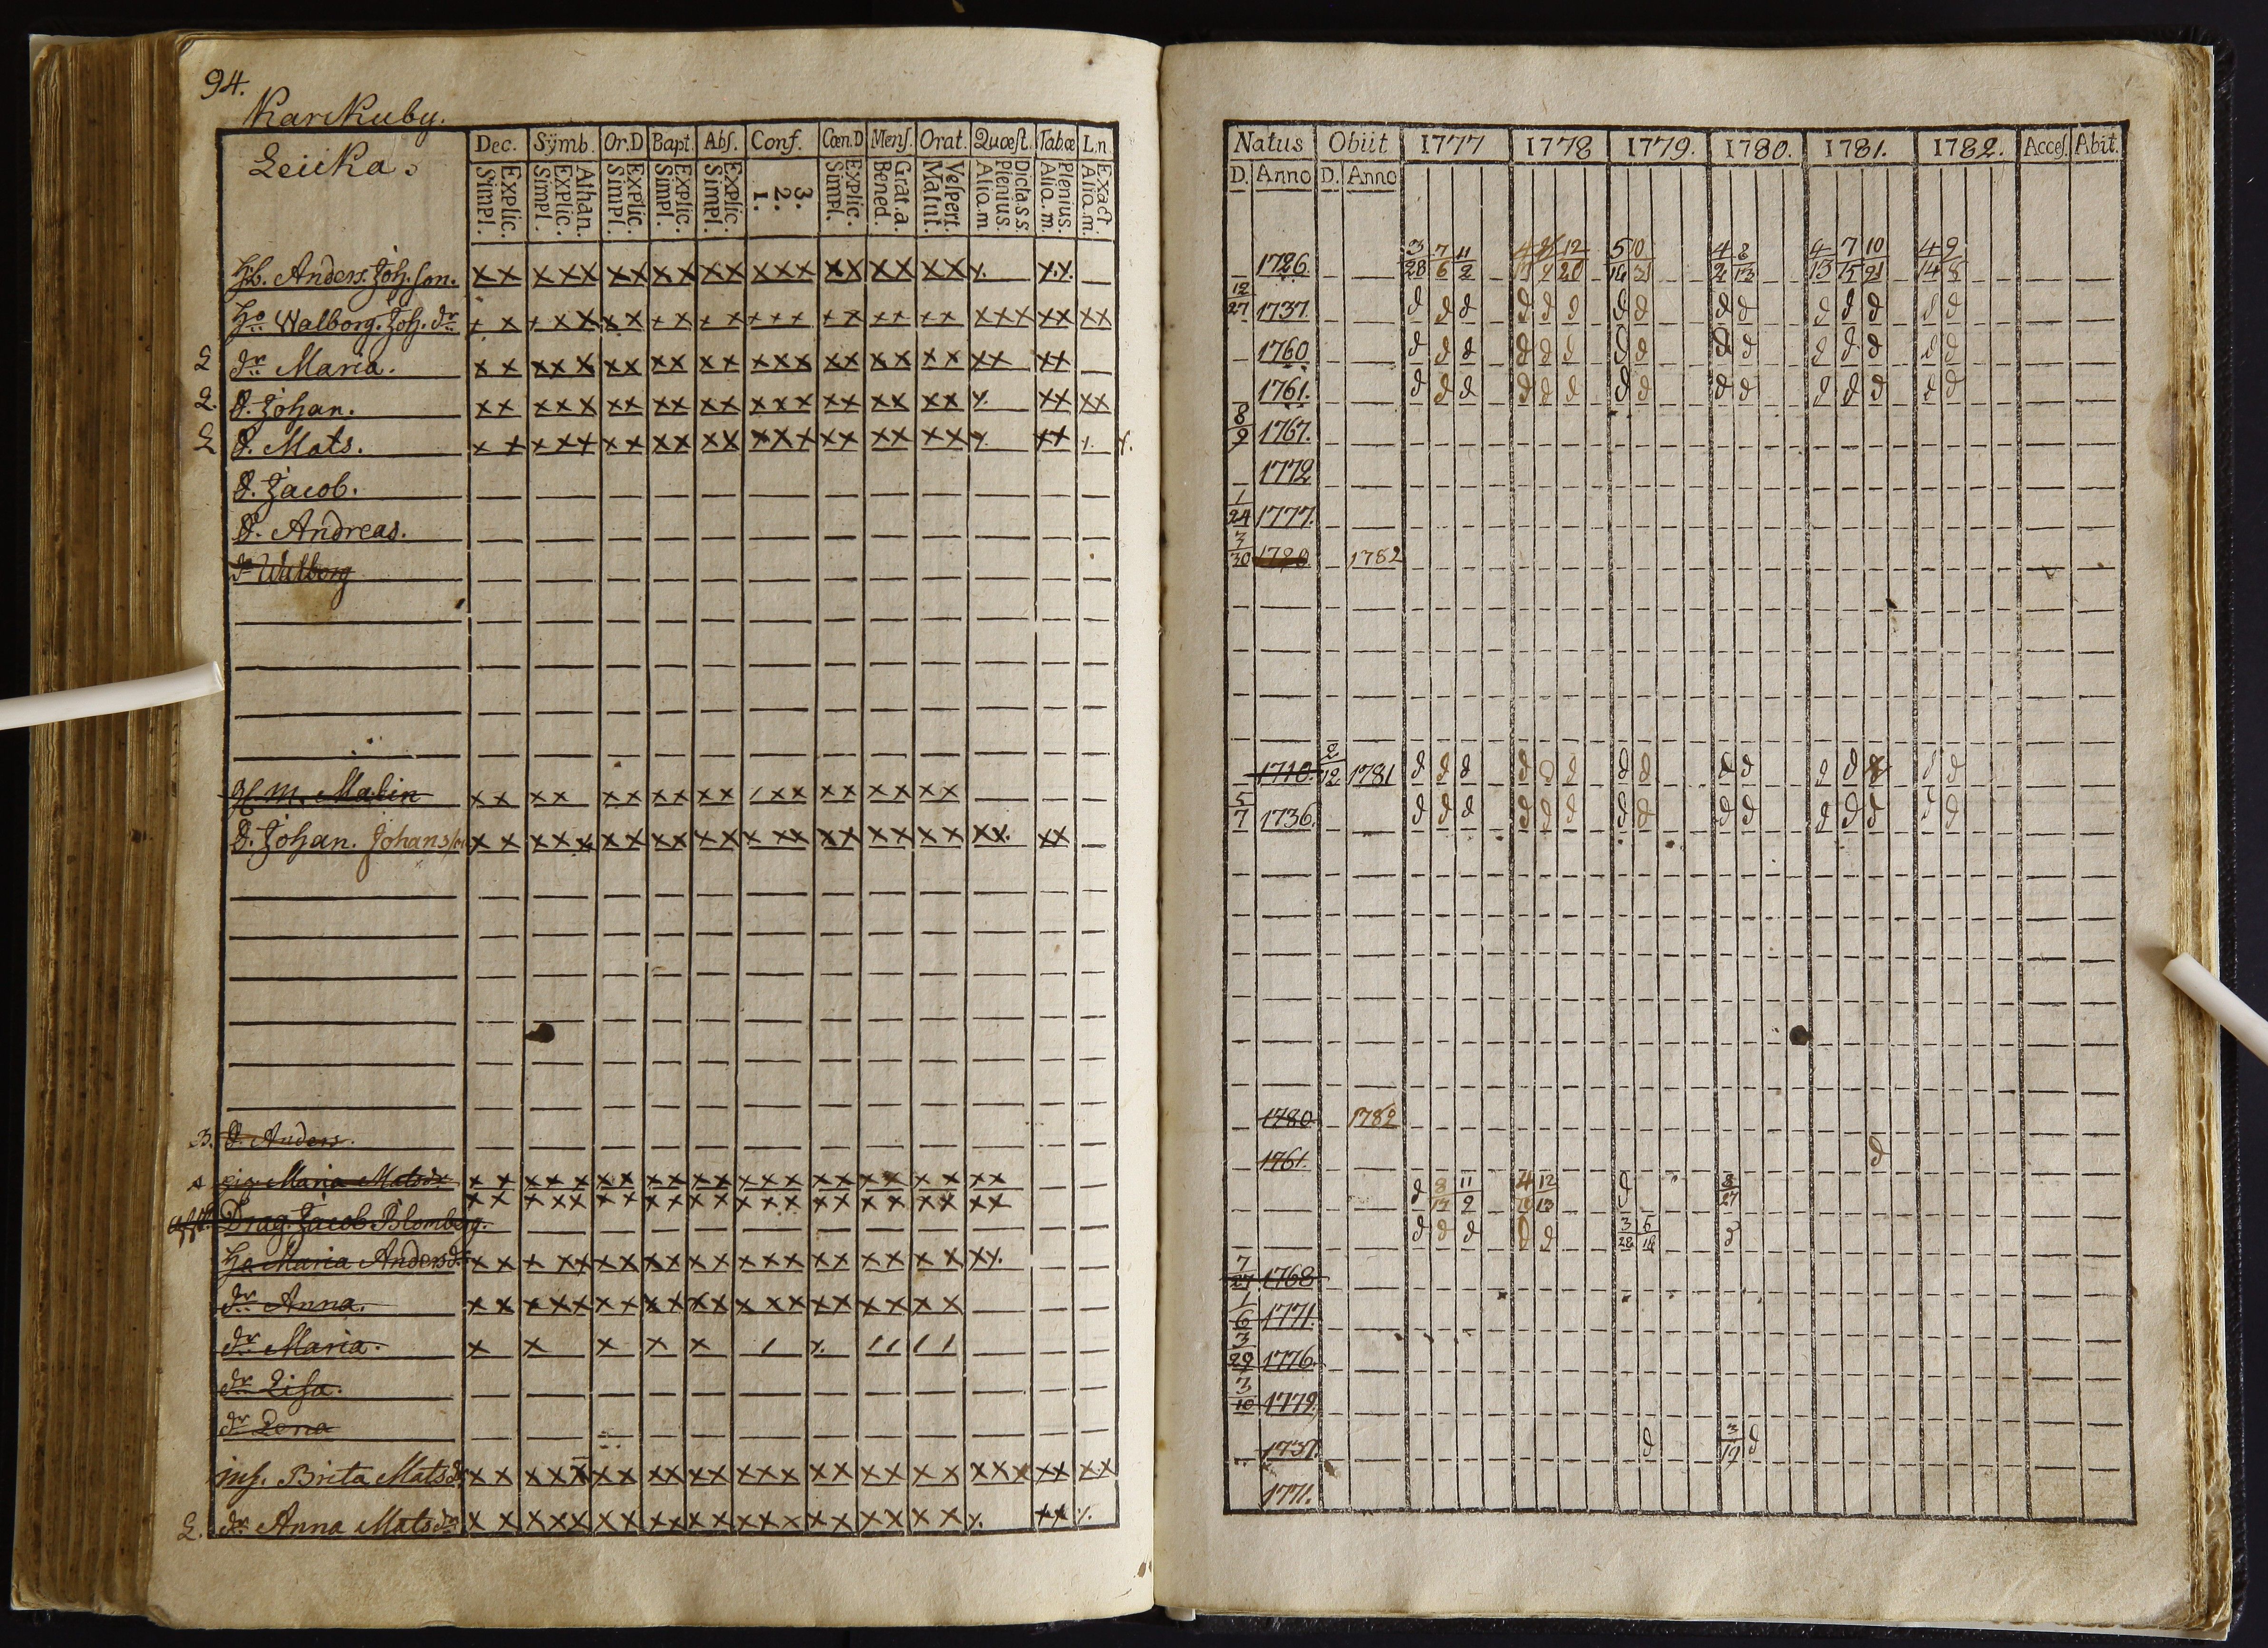 94.
Karikuby.
Leicka.
Dec. Sÿmb. Or.D Bapt. Abſ. Conf. Cœn.D Menſ. Orat. Quœſt. Tabœ L.n
Explic. Simpl. Athan. Explic. Simpl. Explic. Simpl. Explic. Simpl. Explic. Simpl. 3. 2. 1. Explic. Simpl. Grat.a. Bened. Veſpert. Matut. Dicta.s.s. Plenius. Aliq.m Plenius. Aliq.m. Exact. Aliq.m.
Hb. Anders. Joh.son. x x x x x x x x x x x x x x x x x x x x x x x.
Ho Walborg. Joh. dr x x x x x x x x x x x x x x x x x x x x x x x x x x x
2 dr Maria. x x x x x x x x x x x x x x x x x x x x x x x x
2. S. Johan. x x x x x x x x x x x x x x x x x x x x x x x x x
2 S. Mats. x x x x x x x x x x x x x x x x x x x x x x x
S. Jacob.
S. Andreas.
dr Walborg
M. Malin x x x x x x x x x x / x x x x x x x x
S. Johan. Johansson x x x x x x x x x x x x x x x x x x x x x x. x x
3. S. Anders.
pig. Maria Matsdr x x x x x x x x x x x x x x x x x x x x x x
x x x x x x x x x x x x x x x x x x x x x x
Drag. Jacob Blomberg.
Ho Maria Andersdr x x x x x x x x x x x x x x x x x x x x x x.
dr Anna. x x x x x x x x x x x x x x x x x x x x
dr Maria. x x x x x / x. / / / /
dr Lisa.
dr Lena
inh. Brita Matsdr x x x x x x x x x x x x x x x x x x x x x x x x x x x
2. dr Anna Matsdr x x x x x x x x x x x x x x x x x x x x x. x x x.
Natus Obiit 1777 1778 1779. 1780. 1781. 1782. Acceſ. Abit.
D. Anno D. Anno
1726. 3/28 7/6 11/2 12/20 5/16 10/31 4/2 8/13 4/13 7/15 10/21 4/14 9/8
12/27 1737. d d d d d d d d d d d d d d d
1760. d d d d d d d d d d d d d d d
1761. d d d d d d d d d d d d d d d
8/9 1767.
1772
1/24 1777.
3/30 1780. 1782
1710. 2/12. 1781 d d d d d d d d d d d d d d
5/7 1736. d d d d d d d d d d d d d d d
1780 1782
1761. d
d 8/17 11/2 4/ 12/13 d 8/27
d d d d d 3/28 6/ d
7/27 1768
1/6 1771.
3/29 1776.
3/10 1779.
1737. d 3/19 d
1771.